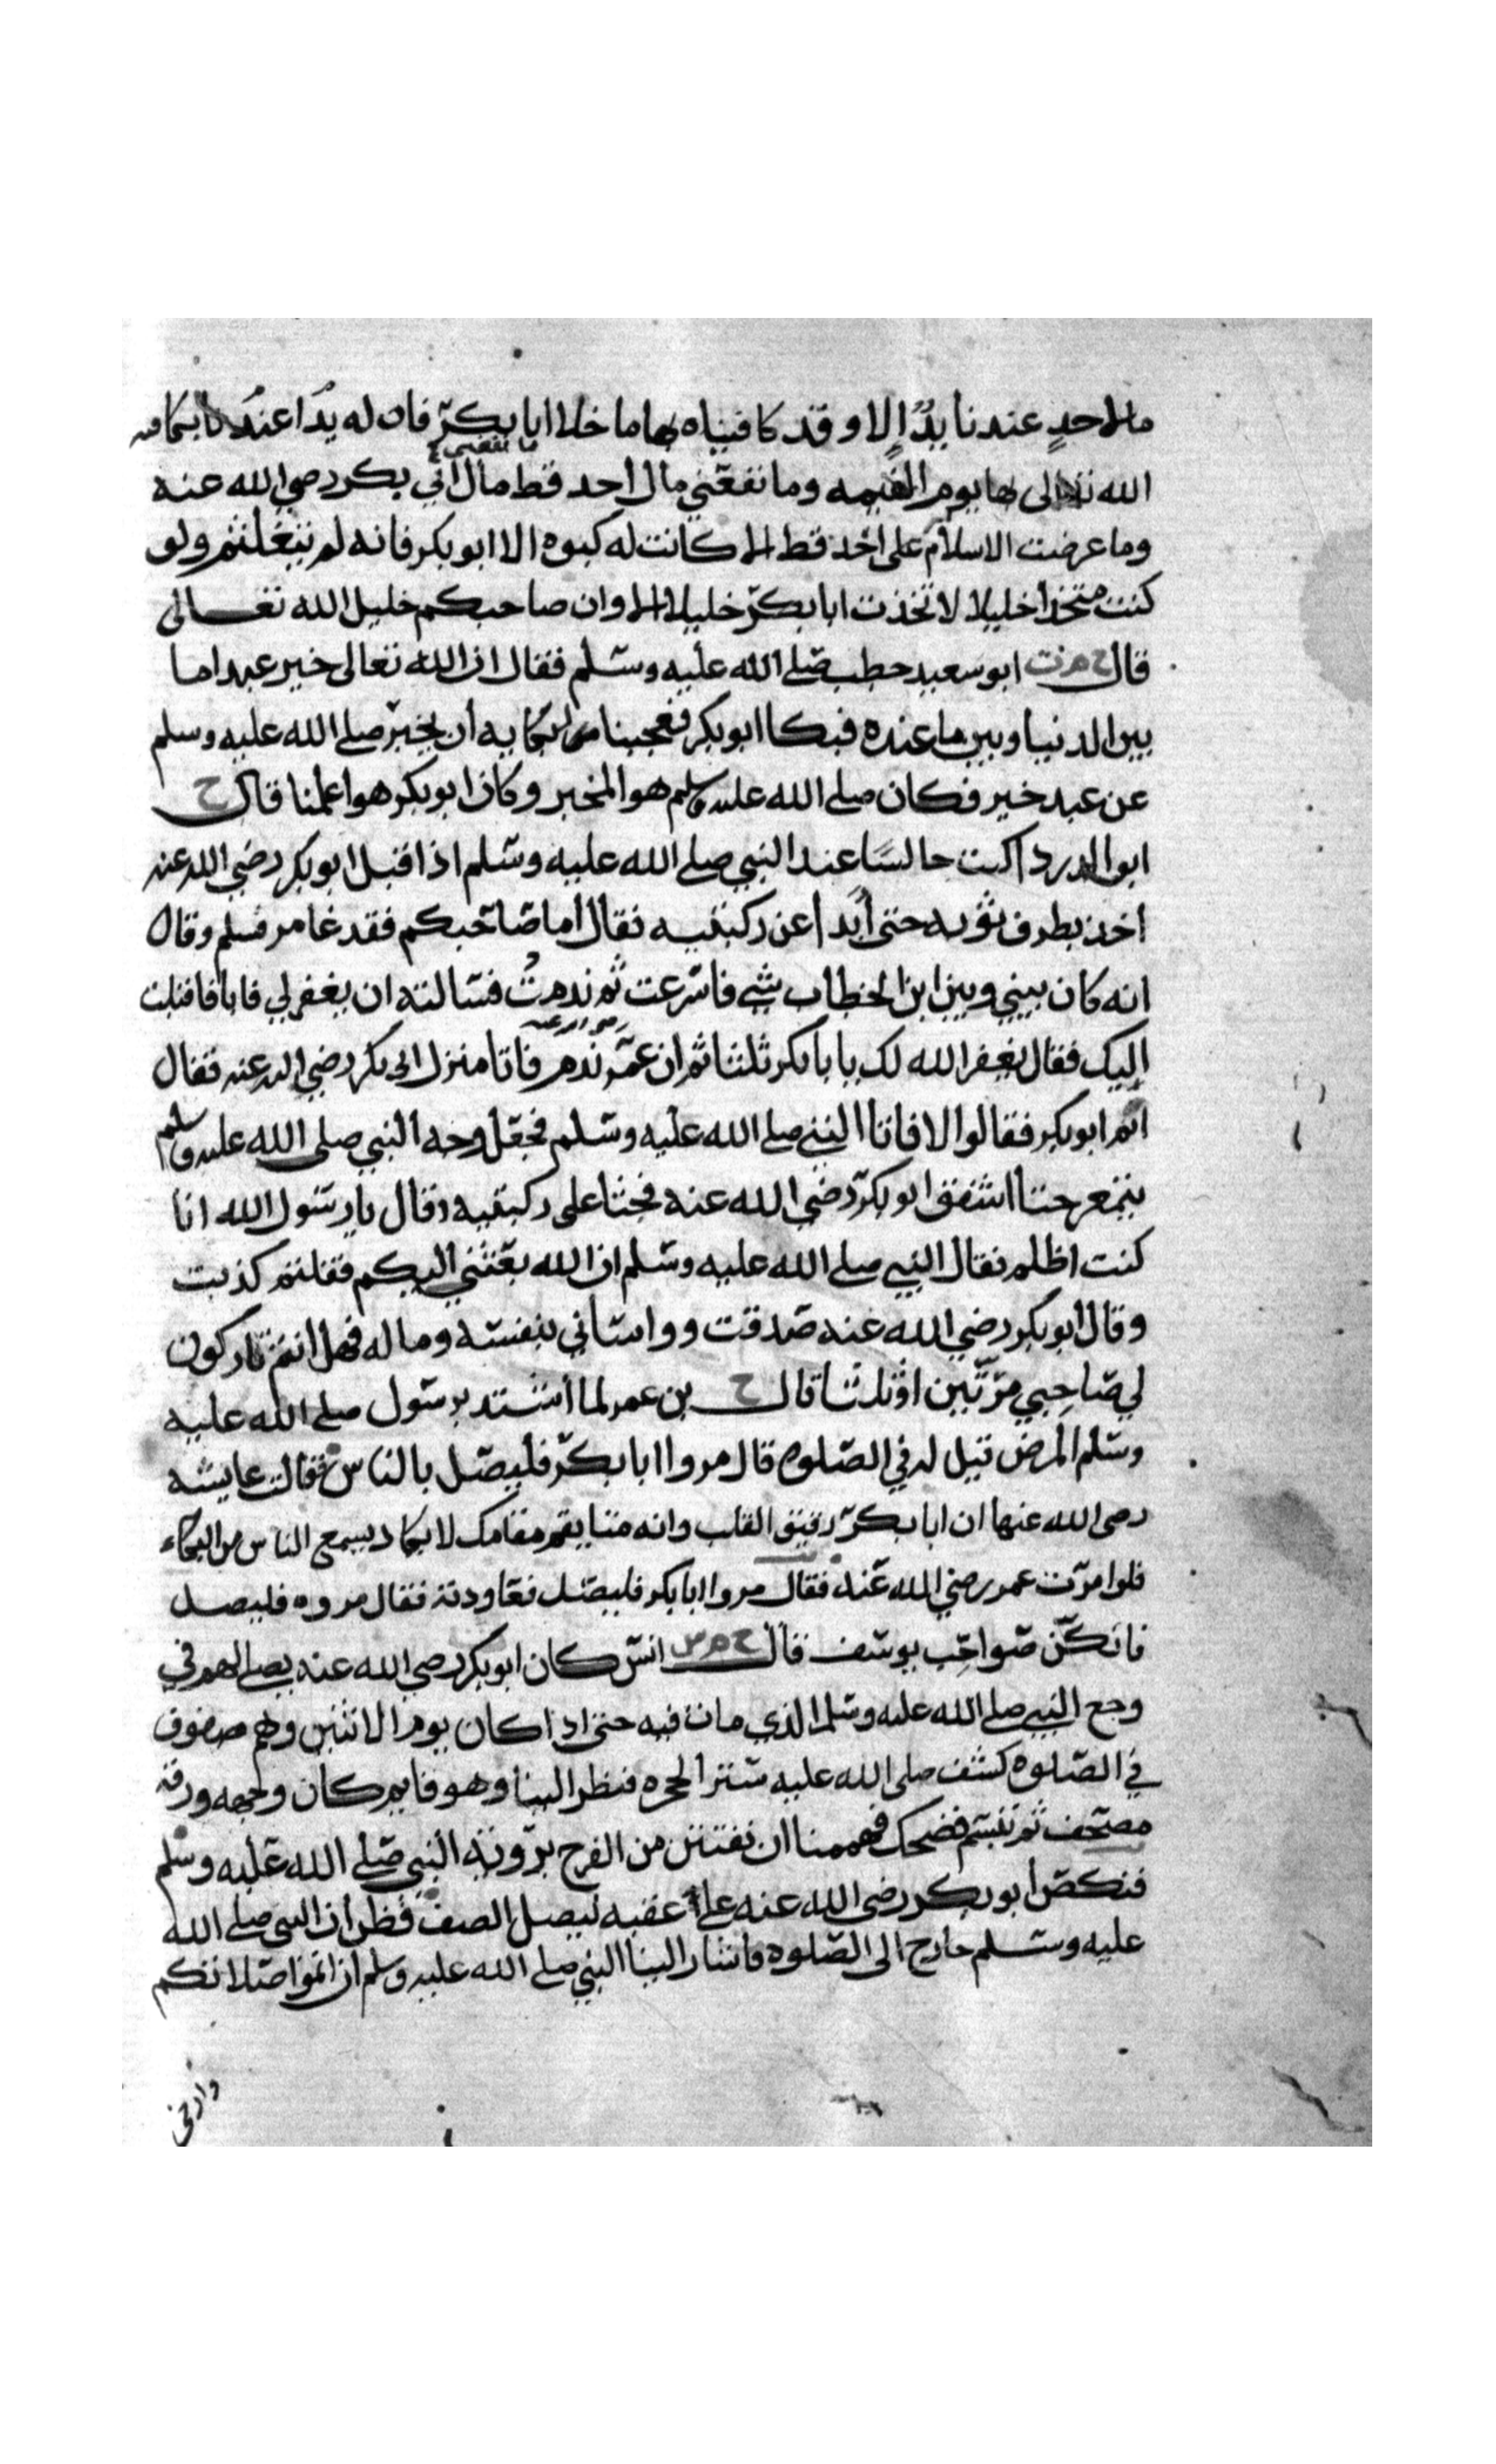 ما لاحدٍ عندنا يدٌ إلا وقد كافيناه بها ما خلا ابا بكرٍ فان له يدًا عندنا يكافيه
ما نفعني
الله تعالى بها يوم القيمه وما نفعني مال أحد قط مال ابي بكر رضي الله عنه
وما عرضت الاسلام على احد قط الا كانت له كبوه الا ابو بكر فانه لم يتلعثم ولو
كنت متخذا خليلا لاتخذت ابا بكر خليلا الا وان صاحبكم خليل الله تعالى
قال خ م ت ابو سعيد خطب صلى الله عليه وسلم فقال ان الله تعالى خير عبدا ما
بين الدنيا وبين ما عنده فبكا ابو بكر فعجبنا من بكايه أن يخبر صلى الله عليه وسلم
عن عبد خير فكان صلى الله عليه وسلم هو المخير وكان ابو بكر هو اعلمنا قال خ
ابو الدردا كنت جالسًا عند النبي صلى الله عليه وسلم اذ اقبل ابو بكر رضي الله عنه
اخذ بطرف ثوبه حتى أبدا عن ركبتيه فقال أما صاحبكم فقد غامر فسلم وقال
انه كان بيني وبين ابن الخطاب شي فاسرعت ثم ندمتُ فسالته ان يغفر لي فابا فاقبلت
رضي الله عنه
إليك فقال يغفر الله لك يا با بكر ثلثا ثم ان عمر ندم فاتا منزل ابي بكر رضي الله عنه فقال
اثم ابو بكر فقالوا لا فاتا النبي صلى الله عليه وسلم فجعل وجه النبي صلى الله عليه وسلم
يتمعر حتا اشفق ابو بكر رضي الله عنه فجثا على ركبتيه وقال يا رسول الله انا
كنت اظلم فقال النبي صلى الله عليه وسلم ان الله بعثني إليكم فقلتم كذبت
وقال ابو بكر رضي الله عنه صدقت وواساني بنفسه وماله فهل انتم تاركون
لي صاحبي مرّتين او ثلثا قال خ بن عمر لما أشتد برسول صلى الله عليه
وسلم المرض قيل له في الصلوه قال مروا ابا بكر فليصل بالناس فقالت عايشه
رضي الله عنها ان ابا بكر رقيق القلب وانه متا يقم مقامك لا يكاد يسمع الناس من البكاء
فلو امرت عمر رضي الله عنه فقال مروا ابا بكر فليصل فعاودته فقال مروه فليصل
فانكنّ صواحِب يوسف قال خ م س انس كان ابو بكر رضي الله عنه يصلي لهم في
وجع النبي صلى الله عليه وسلم الذي مات فيه حتى اذا كان يوم الاثنين وهم صفوف
في الصلوه كشف صلى الله عليه ستر الحجره فنظر الينا وهو قايم كان وجهه ورقه
مصحف ثم تبسم فضحك فهممنا ان نفتتن من الفرح برؤية النبي صلى الله عليه وسلم
فنكص أبو بكر رضي الله عنه على عقبه ليصل الصف فظن أن النبي صلى الله
عليه وسلم خارج الى الصلوه فاشار الينا النبي صلى الله عليه وسلم ان اتموا صلاتكم
وارخى